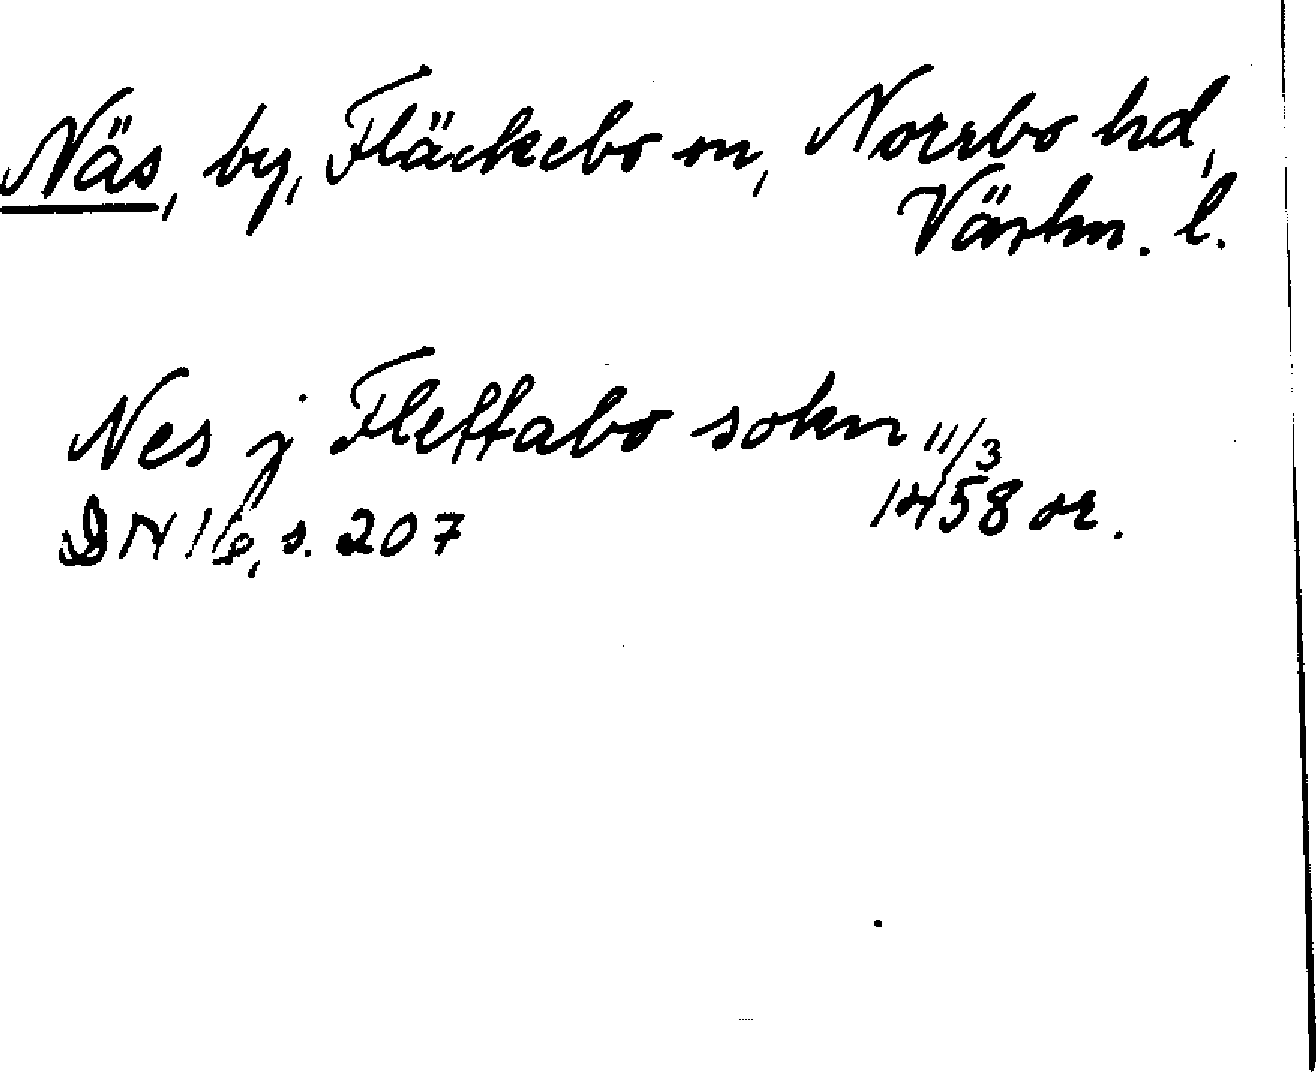 Näs, by, Fläckebo sn, Norrbo hd,
Västm. l.
Nes j Fleffabo sokn 11/3
1458 or.
DN 16, s. 207